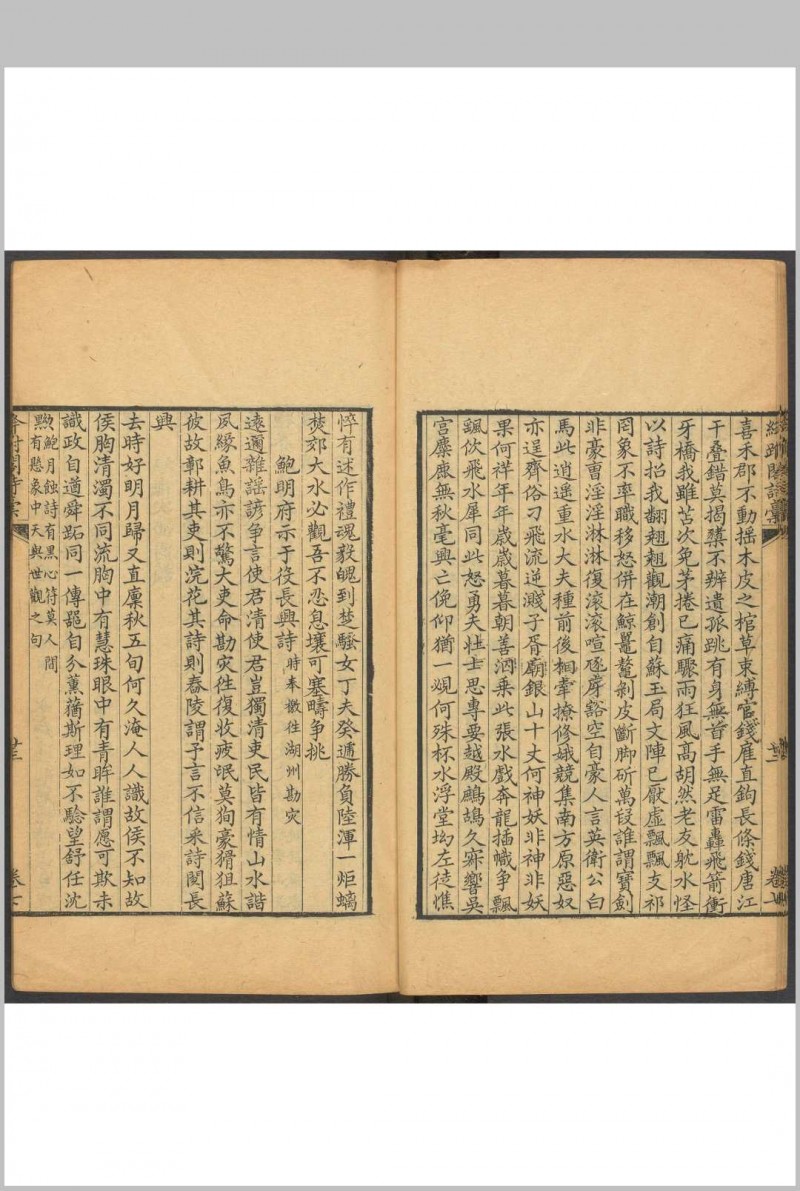 喜禾郡不動搖木皮之棺草束縛官錢雇直鉤長條錢唐江
干疊錯莫揭櫫不辨遺孤跳有身無首手無足雷轟飛箭衝
牙橋我雖苦次免茅捲已痛驟雨狂風高胡然老友躭水怪
以詩招我翻翹翹觀潮創自蘇玉局文陣已厭虛飄飄支祁
罔象不率職移怒併在鯨鼉鼇剝皮斷脚斫萬段誰謂寶劍
非豪曹淫淫淋淋復滾滾喧豗㟏豁空自豪人言英衛公白
馬此逍遥重水大夫種前後相牽撩修娥競集南方原惡奴
亦逞齊俗刁飛流逆濺子胥廟銀山十丈何神妖非神非妖
果何祥年年歲歲暮暮朝善泅乘此張水戲奔龍插幟争飄
颯佽飛水犀同此怒勇夫壯士思專要越殿鷓鴣久寂響吳
宫麋鹿無秋毫興亡俛仰猶一覕何殊杯水浮堂坳左徒憔
悴有述作禮魂毅魄到楚騷女丁夫癸逓勝負陸渾一炬螭
焚郊大水必觀吾不恐息壤可塞疇争挑
鮑明府示于役長興詩 時奉檄往湖州勘灾
遠邇雜謡諺争言使君清使君豈獨清吏民皆有情山水諧
夙緣魚鳥亦不驚大吏命勘灾徃復收疲氓莫狥豪猾狙蘇
彼故鄣耕其吏則浣花其詩則舂陵謂予言不信釆詩閱長
興
去時好明月歸又直稟秋五旬何久淹人人識故侯不知故
侯胸清濁不同流胸中有慧珠眼中有青眸誰謂愿可欺未
識政自遒舜跖同一傳黽自分薰蕕斯理如不驗望舒任沈
欻 鮑月蝕詩有黑心符莫人間
黝 有懸象中天與世觀之句